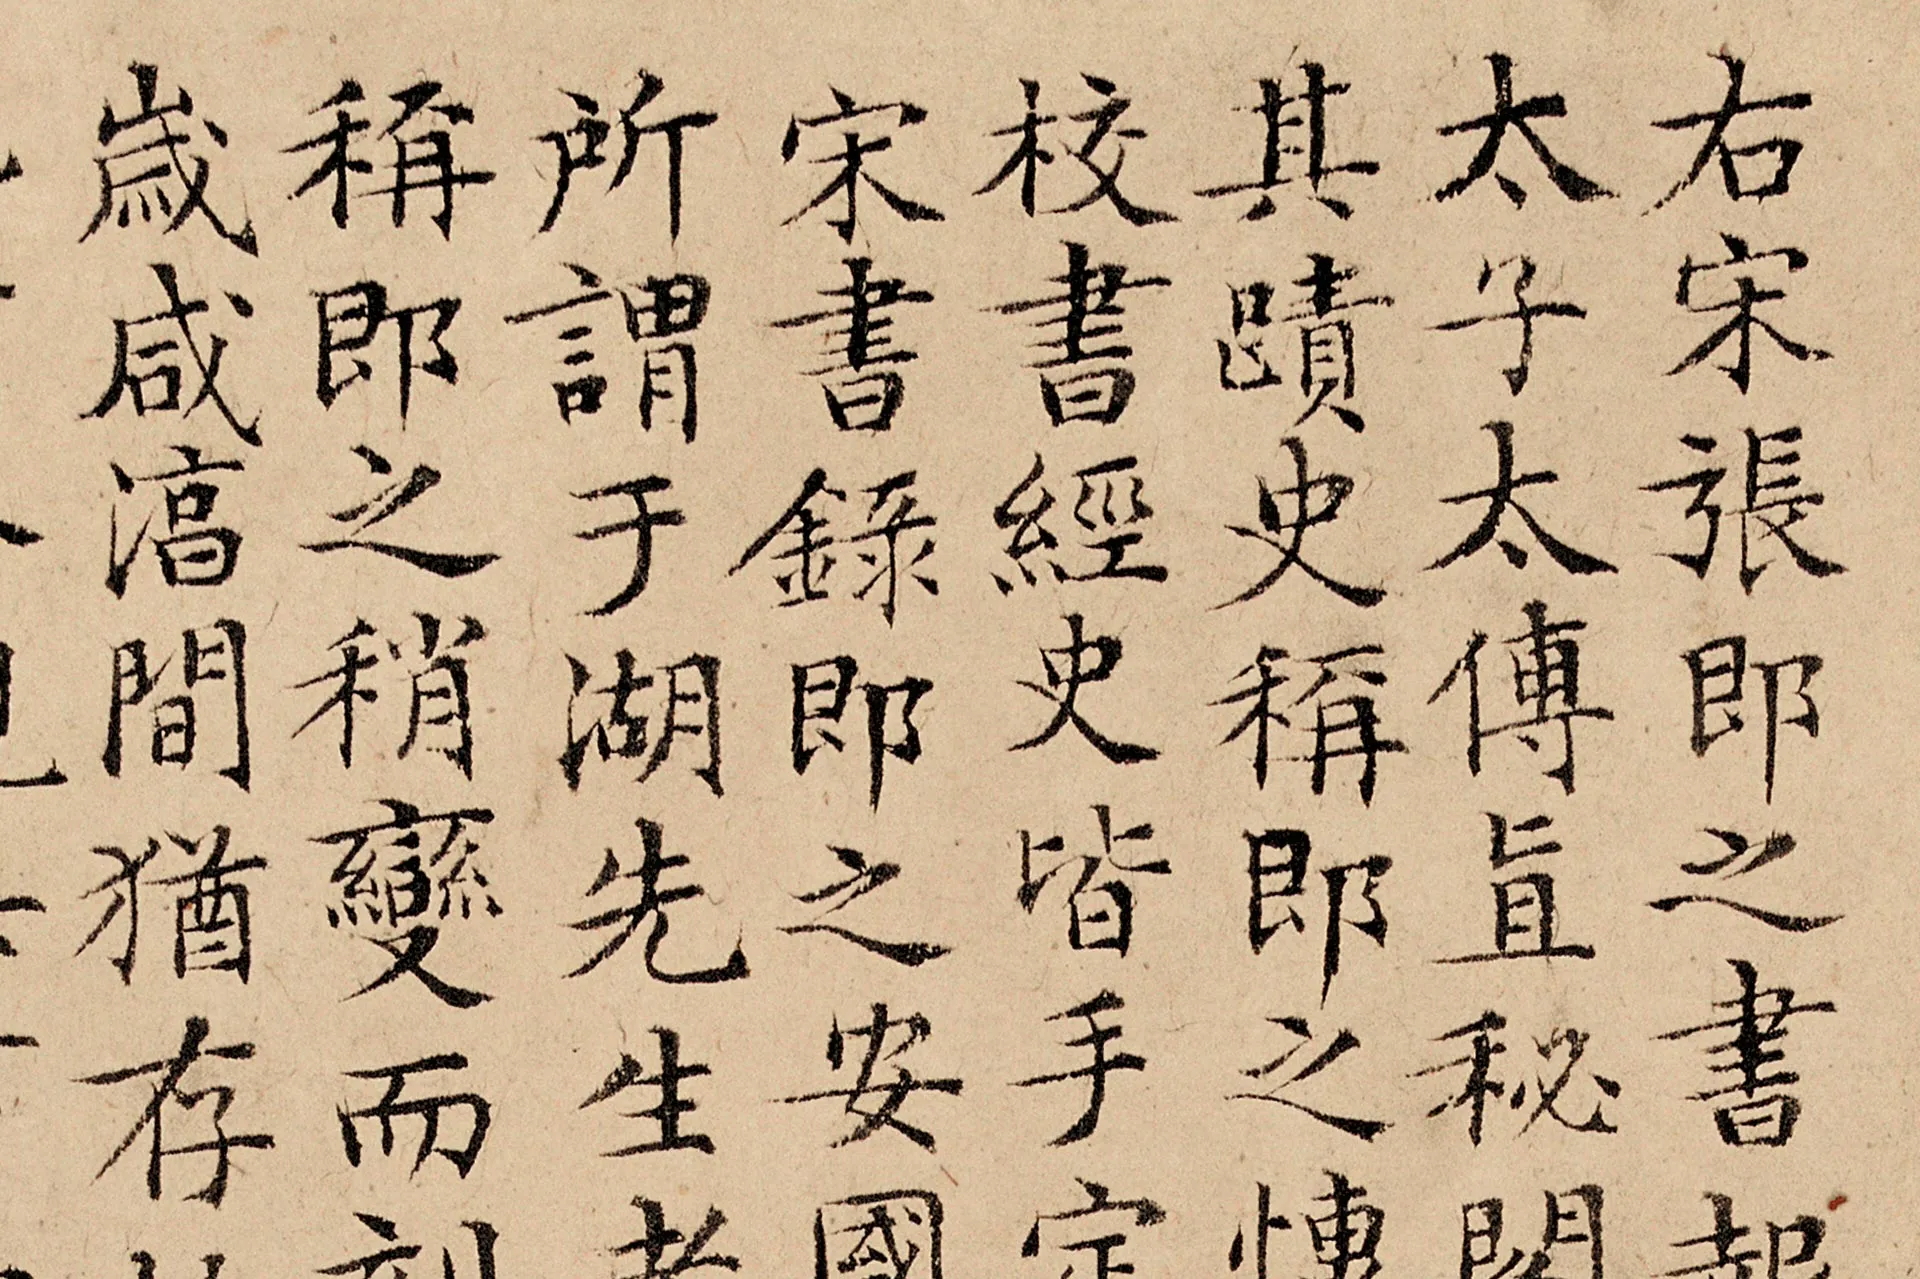 右宋張即之書
太子太傳眞秘閣
其蹟史稱即之
校書經史皆手定
宋書錄即之安國
所謂于湖先生
稱即之稍變而刻
歲咸淳間猶存